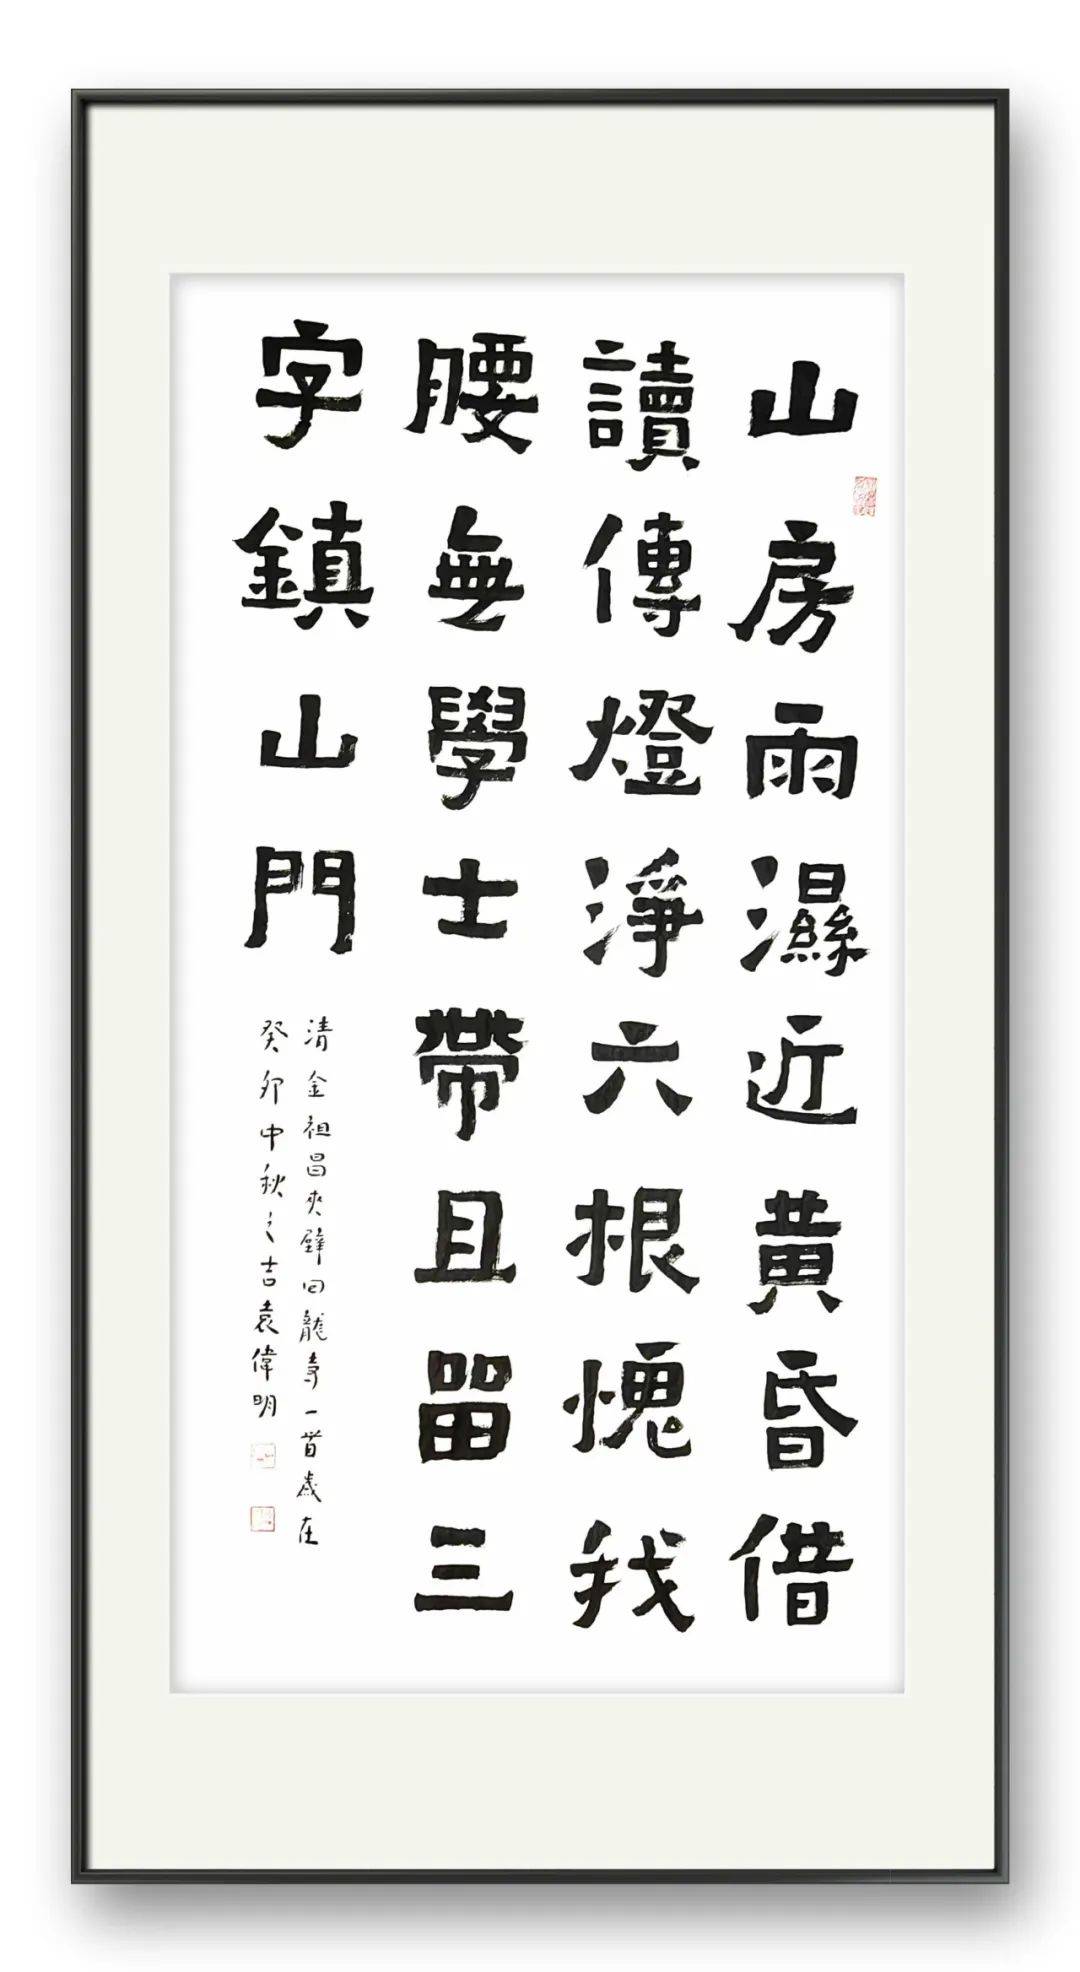 山房雨濕近黃昏借
讀傳燈淨六根愧我
腰無學士帶且留三
字鎮山門
清金祖昌夾壁回龍寺一首歲在
癸卯中秋之吉袁偉明